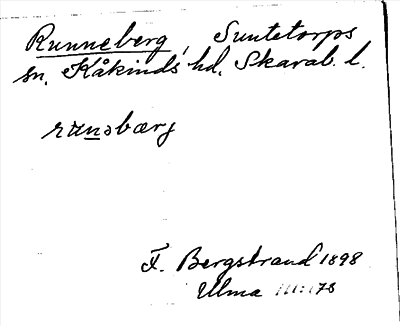 Runneberg, Suntetorps
sn. Kåkinds hd. Skarab. l.
runəbærg
F. Bergstrand 1898
Ulma 111:178